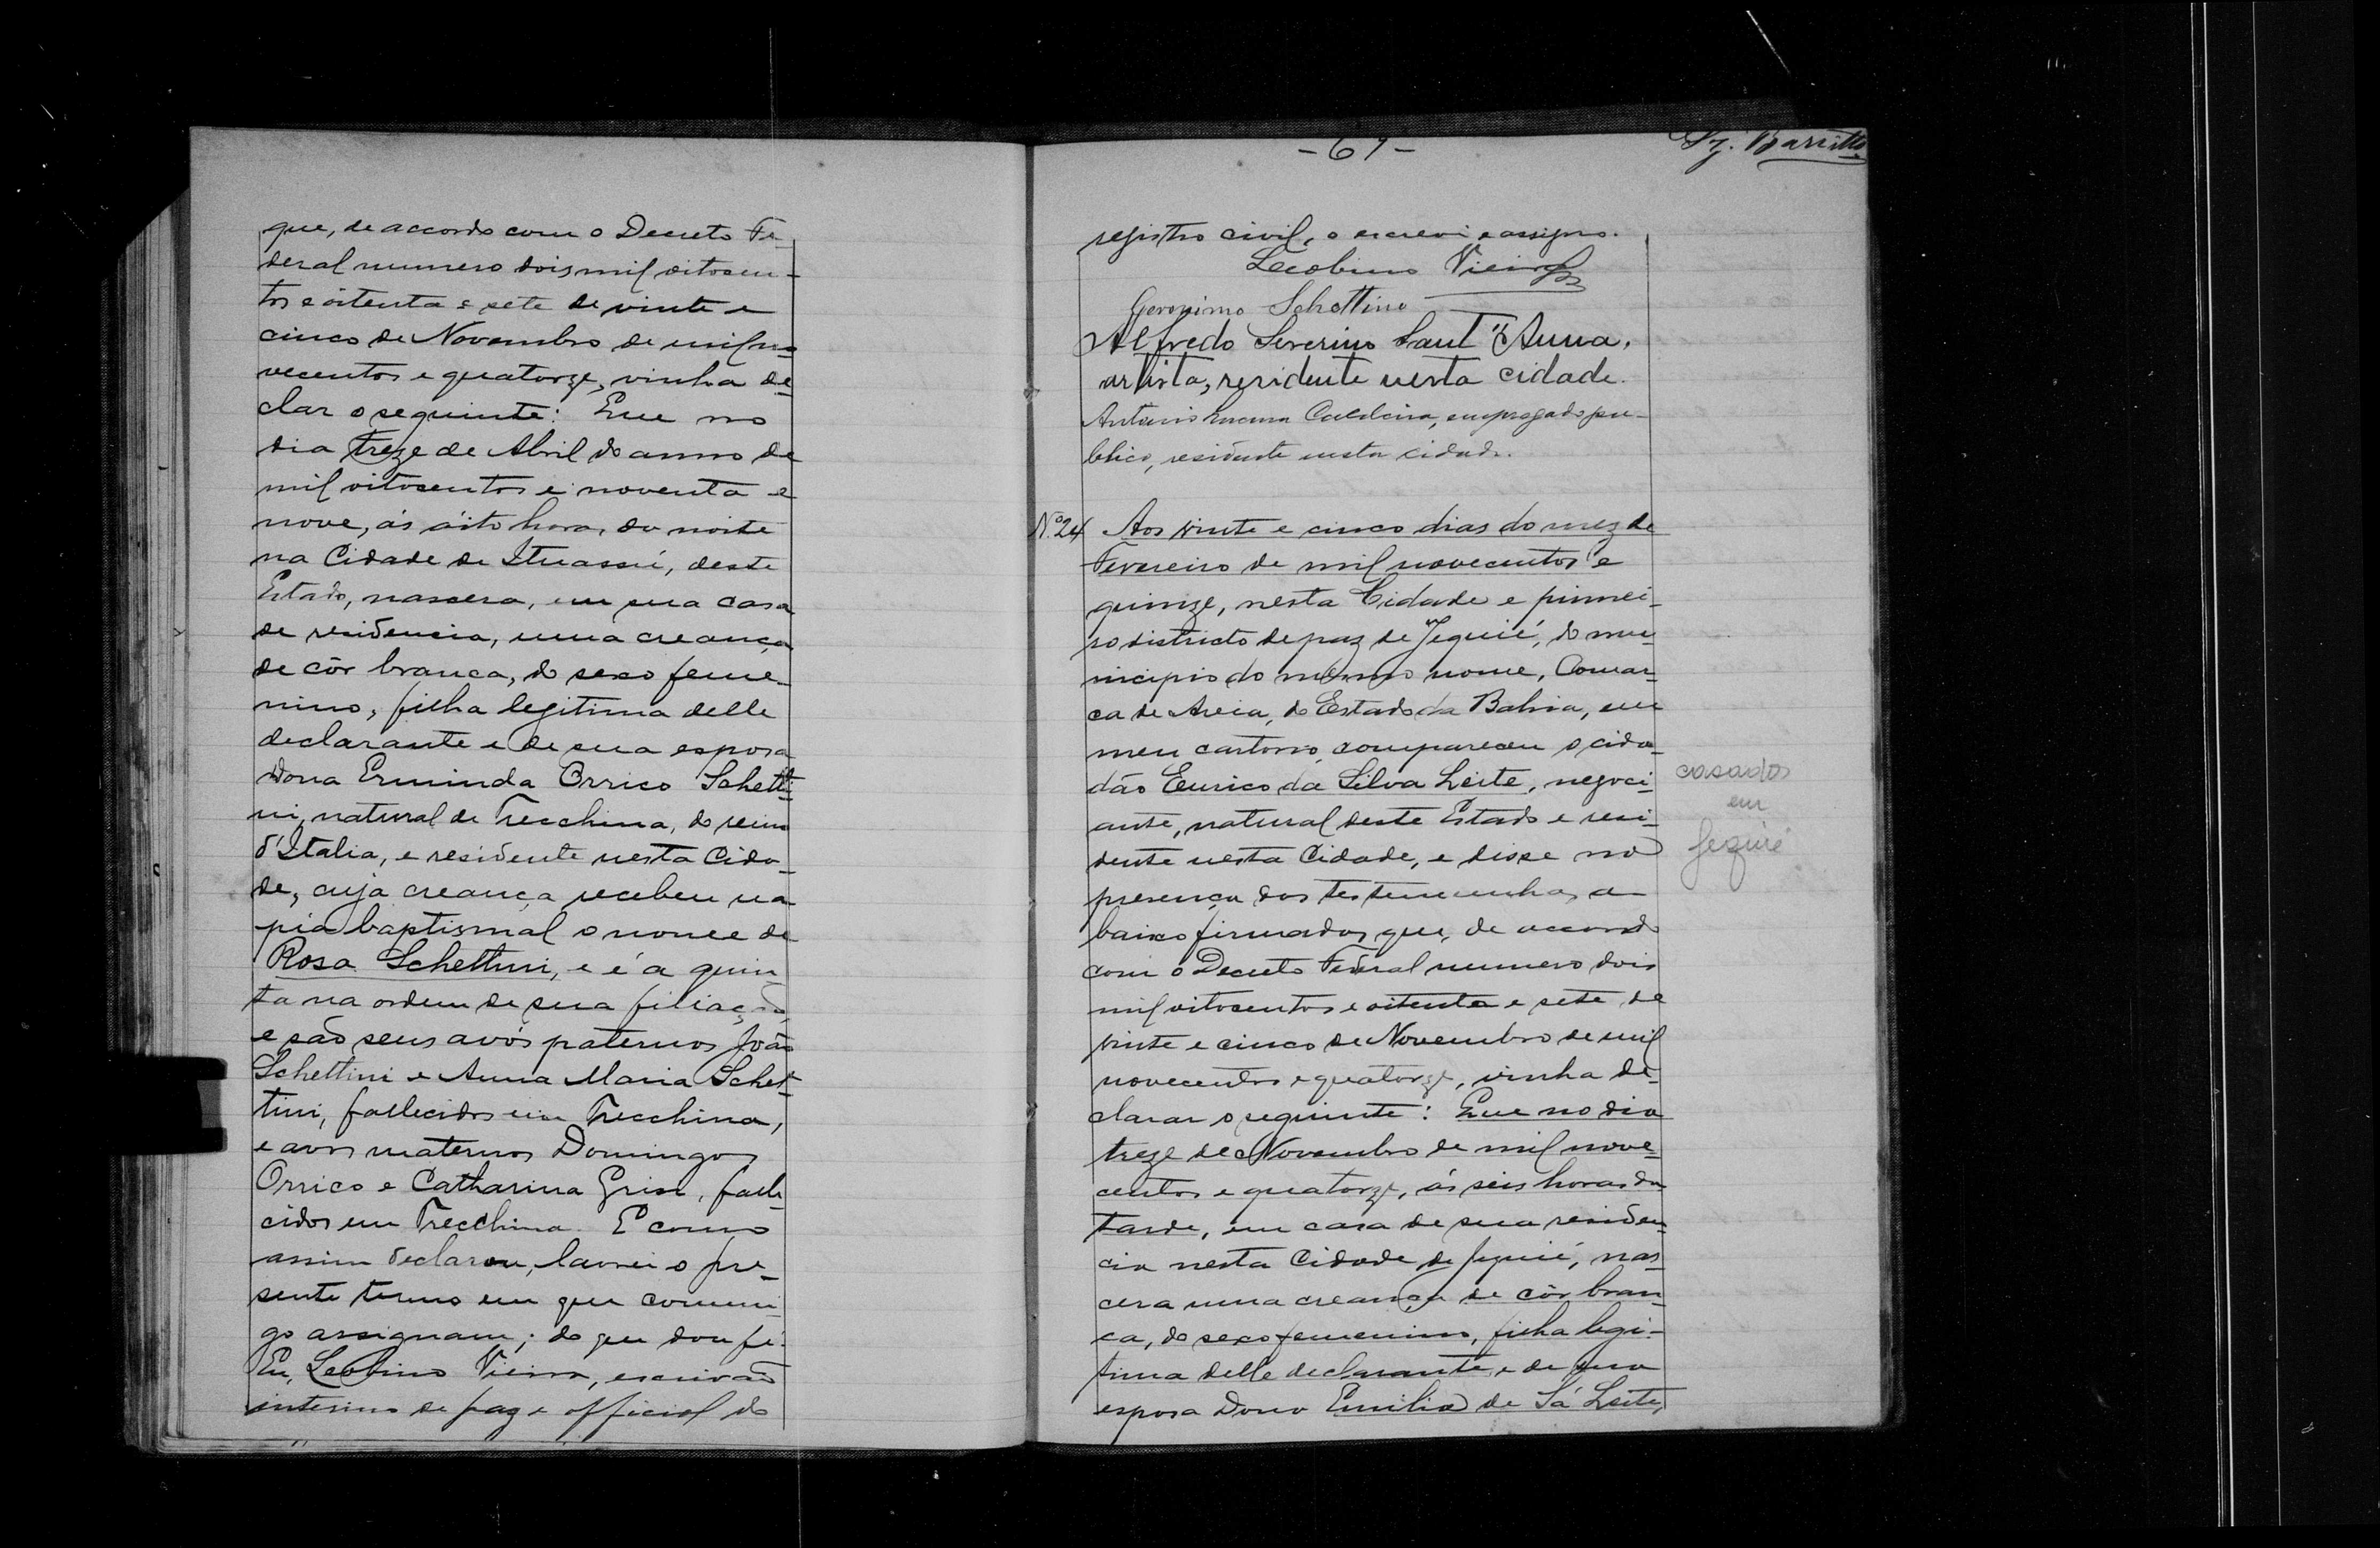 que, de accordo com o Decreto Fe-
deral numero dois mil oitocen-
tos e oitenta e sete de vinte e
cinco de Novembro de mil no-
vecentos e quatorze, vinha de-
clar o seguinte: Que no
dia treze de Abril do anno de
mil oitocentos e noventa e
nove, ás oito horas da noite
na Cidade de Ituassú, deste
Estado, nascera, em sua casa
de residencia, uma creança
de côr branca, do sexo feme-
nino, filha legitima delle
declarante e de sua esposa
Dona Erminda Orrico Schetti-
ni, natural de Trecchina, do reino
d'Italia, e residente nesta Cida-
de, cuja creança recebeu na
pia baptismal o nome de
Rosa Schettini, e é a quin-
ta na ordem de sua filiação,
e são seus avós paternos João
Schettini e Anna Maria Schet-
tini, fallecidos em Trecchina,
e avos maternos Domingos
Orrico e Catharina Grisi, falle-
cidos em Trecchina. E como
assim declarou, lavrei o pre-
sente termo em que commi-
go assignam; do que dou fé.
Eu, Leobino Vieira, escrivão
interino de paz e official do
-61-
Barretto
registro civil, o escrevi e assigno.
Leobino Vieira
Geronimo Schettino
Alfredo Severino Sant'Anna,
artista, residente nesta cidade.
Antonio Caldeira, empregado pu-
blico, residente nesta cidade.
Nº 24 Aos vinte e cinco dias do mez de
Fevereiro de mil novecentos e
quinze, nesta Cidade e primei-
ro districto de paz de Jequié, do mu-
nicipio do mesmo nome, Comar-
ca de Areia, do Estado da Bahia, em
meu cartorio compareceu o cida-
dão Eurico da Silva Leite, negoci-
ante, natural deste Estado e resi-
dente nesta Cidade, e disse na
presença das testemunhas a-
baixo firmadas que, de accordo
com o Decreto Federal numero dois
mil oitocentos e oitenta e sete, de
vinte e cinco de Novembro de mil
novecentos e quatorze, vinha de-
clarar o seguinte: Que no dia
treze de Novembro de mil nove-
centos e quatorze, ás seis horas da
tarde, em casa de sua residen-
cia nesta Cidade de Jequié, nas-
cera uma creança de côr bran-
ca, do sexo femenino, filha legi-
tima delle declarante e de sua
esposa Dona Emilia de Sá Leite,
casados
em
Jequié